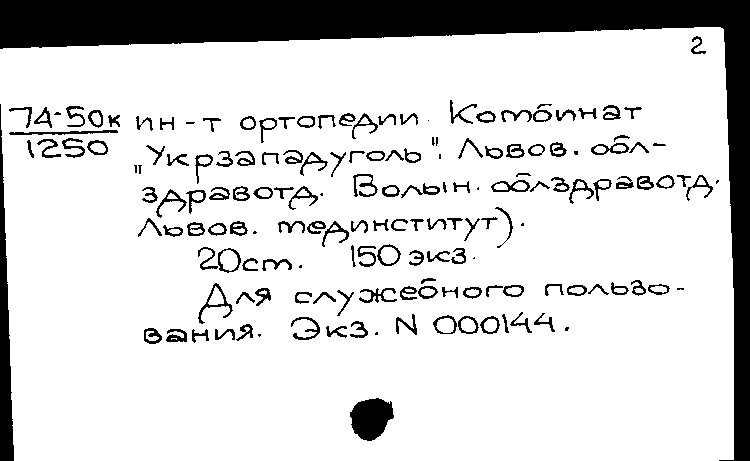 2
74-50к ин-т ортопедии. Комбинат
1250 „Укрзападуголь". Львов. обл-
здравотд. Волын. облздравотд.
Львов. мединститут).
20 cm. 150 экз.
Для служебного пользо-
вания. Экз. N 000144.